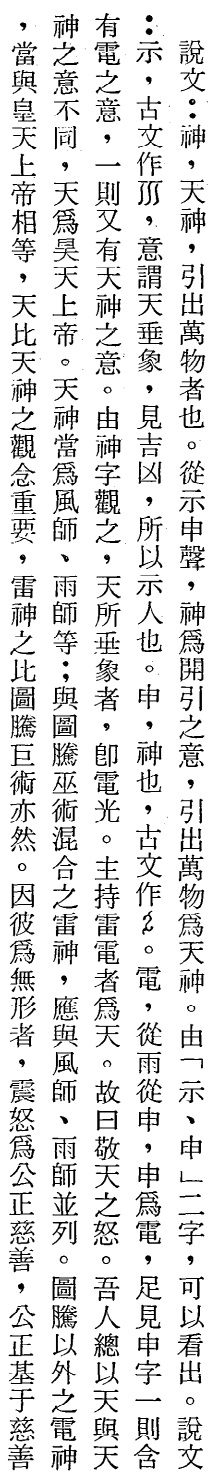 說文：神，天神，引出萬物者也。從示申聲，神爲開引之意，引出萬物爲天神。由「示、申」二字，可以看出。說文
：示，古文作巛，意謂天垂象，見吉凶，所以示人也。申，神也，古文作。電，從雨從申，申爲電，足見申字一則含
有電之意，一則又有天神之意。由神字觀之，天所垂象者，卽電光。主持雷電者爲天。故曰敬天之怒。吾人總以天與天
神之意不同，天爲昊天上帝。天神當爲風師、雨師等；與圖騰巫術混合之雷神，應與風師、雨師並列。圖騰以外之電神
，當與皇天上帝相等，天比天神之觀念重要，雷神之比圖騰巨術亦然。因彼爲無形者，震怒爲公正慈善，公正基于慈善